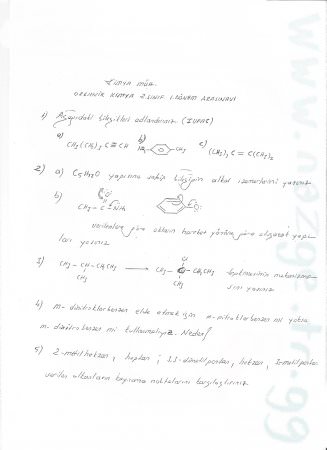 KİMYA MÜH.
ORGANİK KİMYA 2.SINIF 1.DÖNEM ARASINAVI
1) Aşağıdaki bileşikleri adlandırınız (IUPAC)
a) CH₃(CH₂)₃C≡CH b) CH₃ c) (CH₃)₂C=C(CH₃)₂
2) a) yapısına sahip bileşiğin alkol izomerlerini yazınız
b) CH₃-C-NH₂
verilenlere göre okların hareket yönüne göre oluşacak yapı-
ları yazınız
3) CH₃-CH-CH₂CH₃ → CH₃-C-CH₂CH₃ mekanizma-
CH₃ Cl CH₃ sını yazınız
4) m-dinitrobenzen elde etmek için nitrobenzen mi yoksa
m-dinitrobenzen mi kullanmalıyız. Neden?
5) 2-metilhekzan, heptan, 3,3-dimetilpentan, hekzan, 2-metilpentan
verilen alkanların kaynama noktalarını karşılaştırınız.
www.nezge.tr.gg